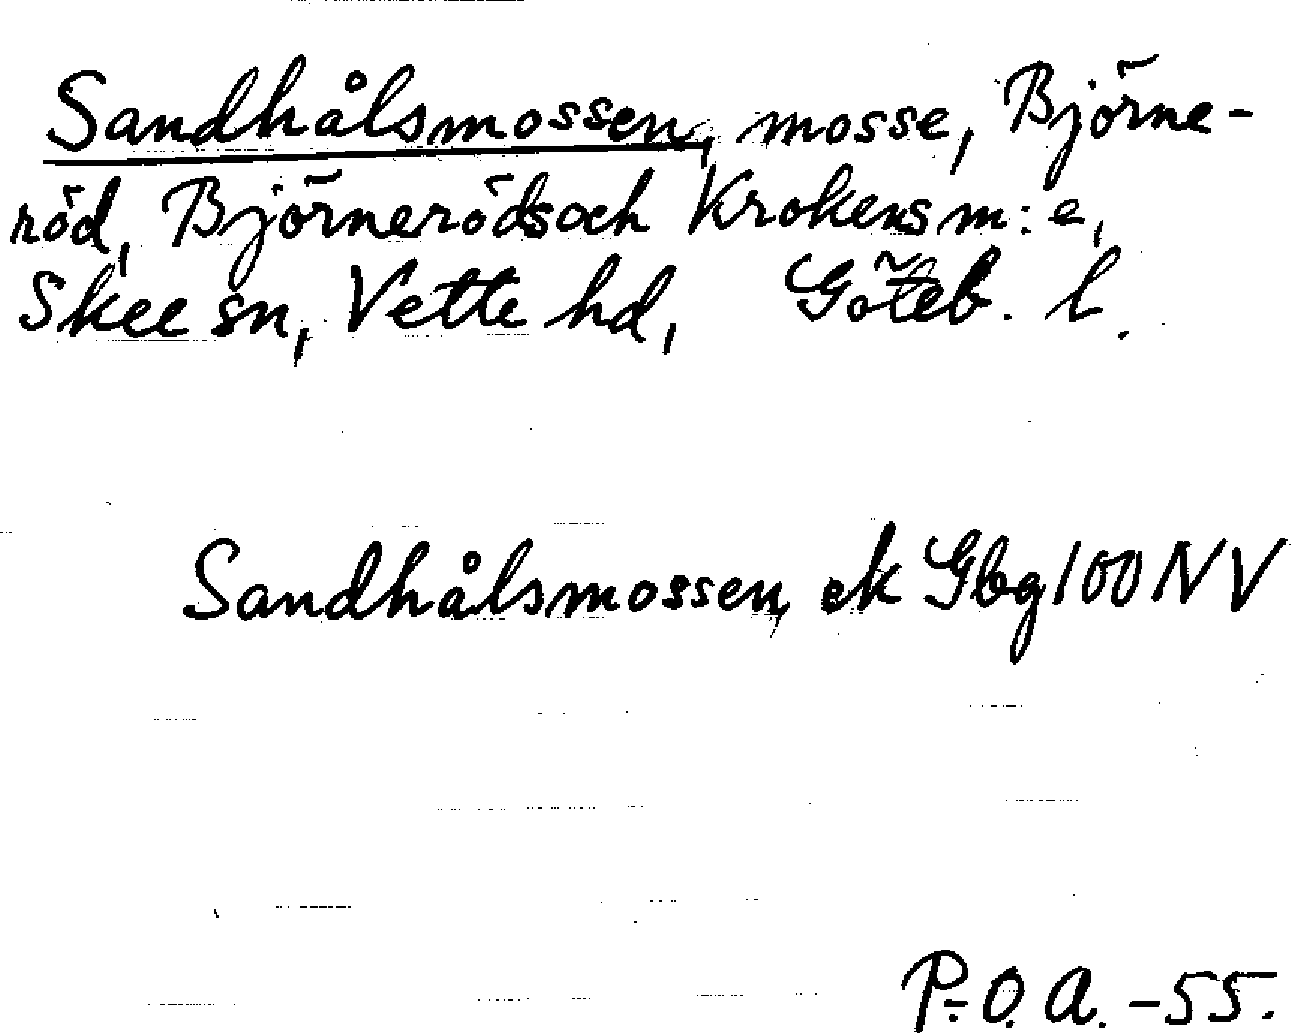 Sandhålsmossen, mosse, Björne-
röd, Björneröds och Krokens m:e,
Skee sn, Vette hd, Göteb. l.
Sandhålsmossen, ek Gbg 100 NV
P.-O. A. -55.